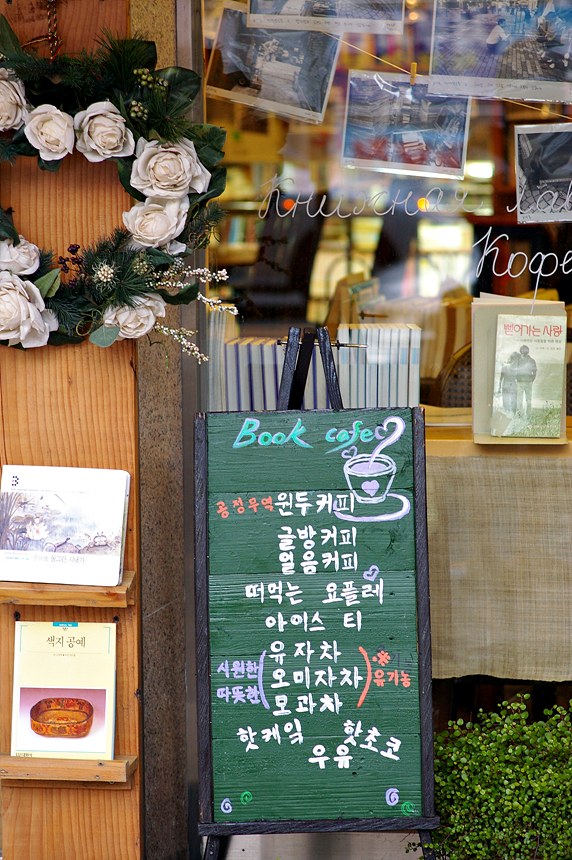 Книжная лав
Кофе
뻗어가는 사랑
Book cafe
공정무역 원두커피
글방커피
얼음커피
떠먹는 요플레
아이스 티
유자차
시원한 오미자차 유기농
따뜻한 모과차
핫케잌 핫초코
우유
3
색지공예